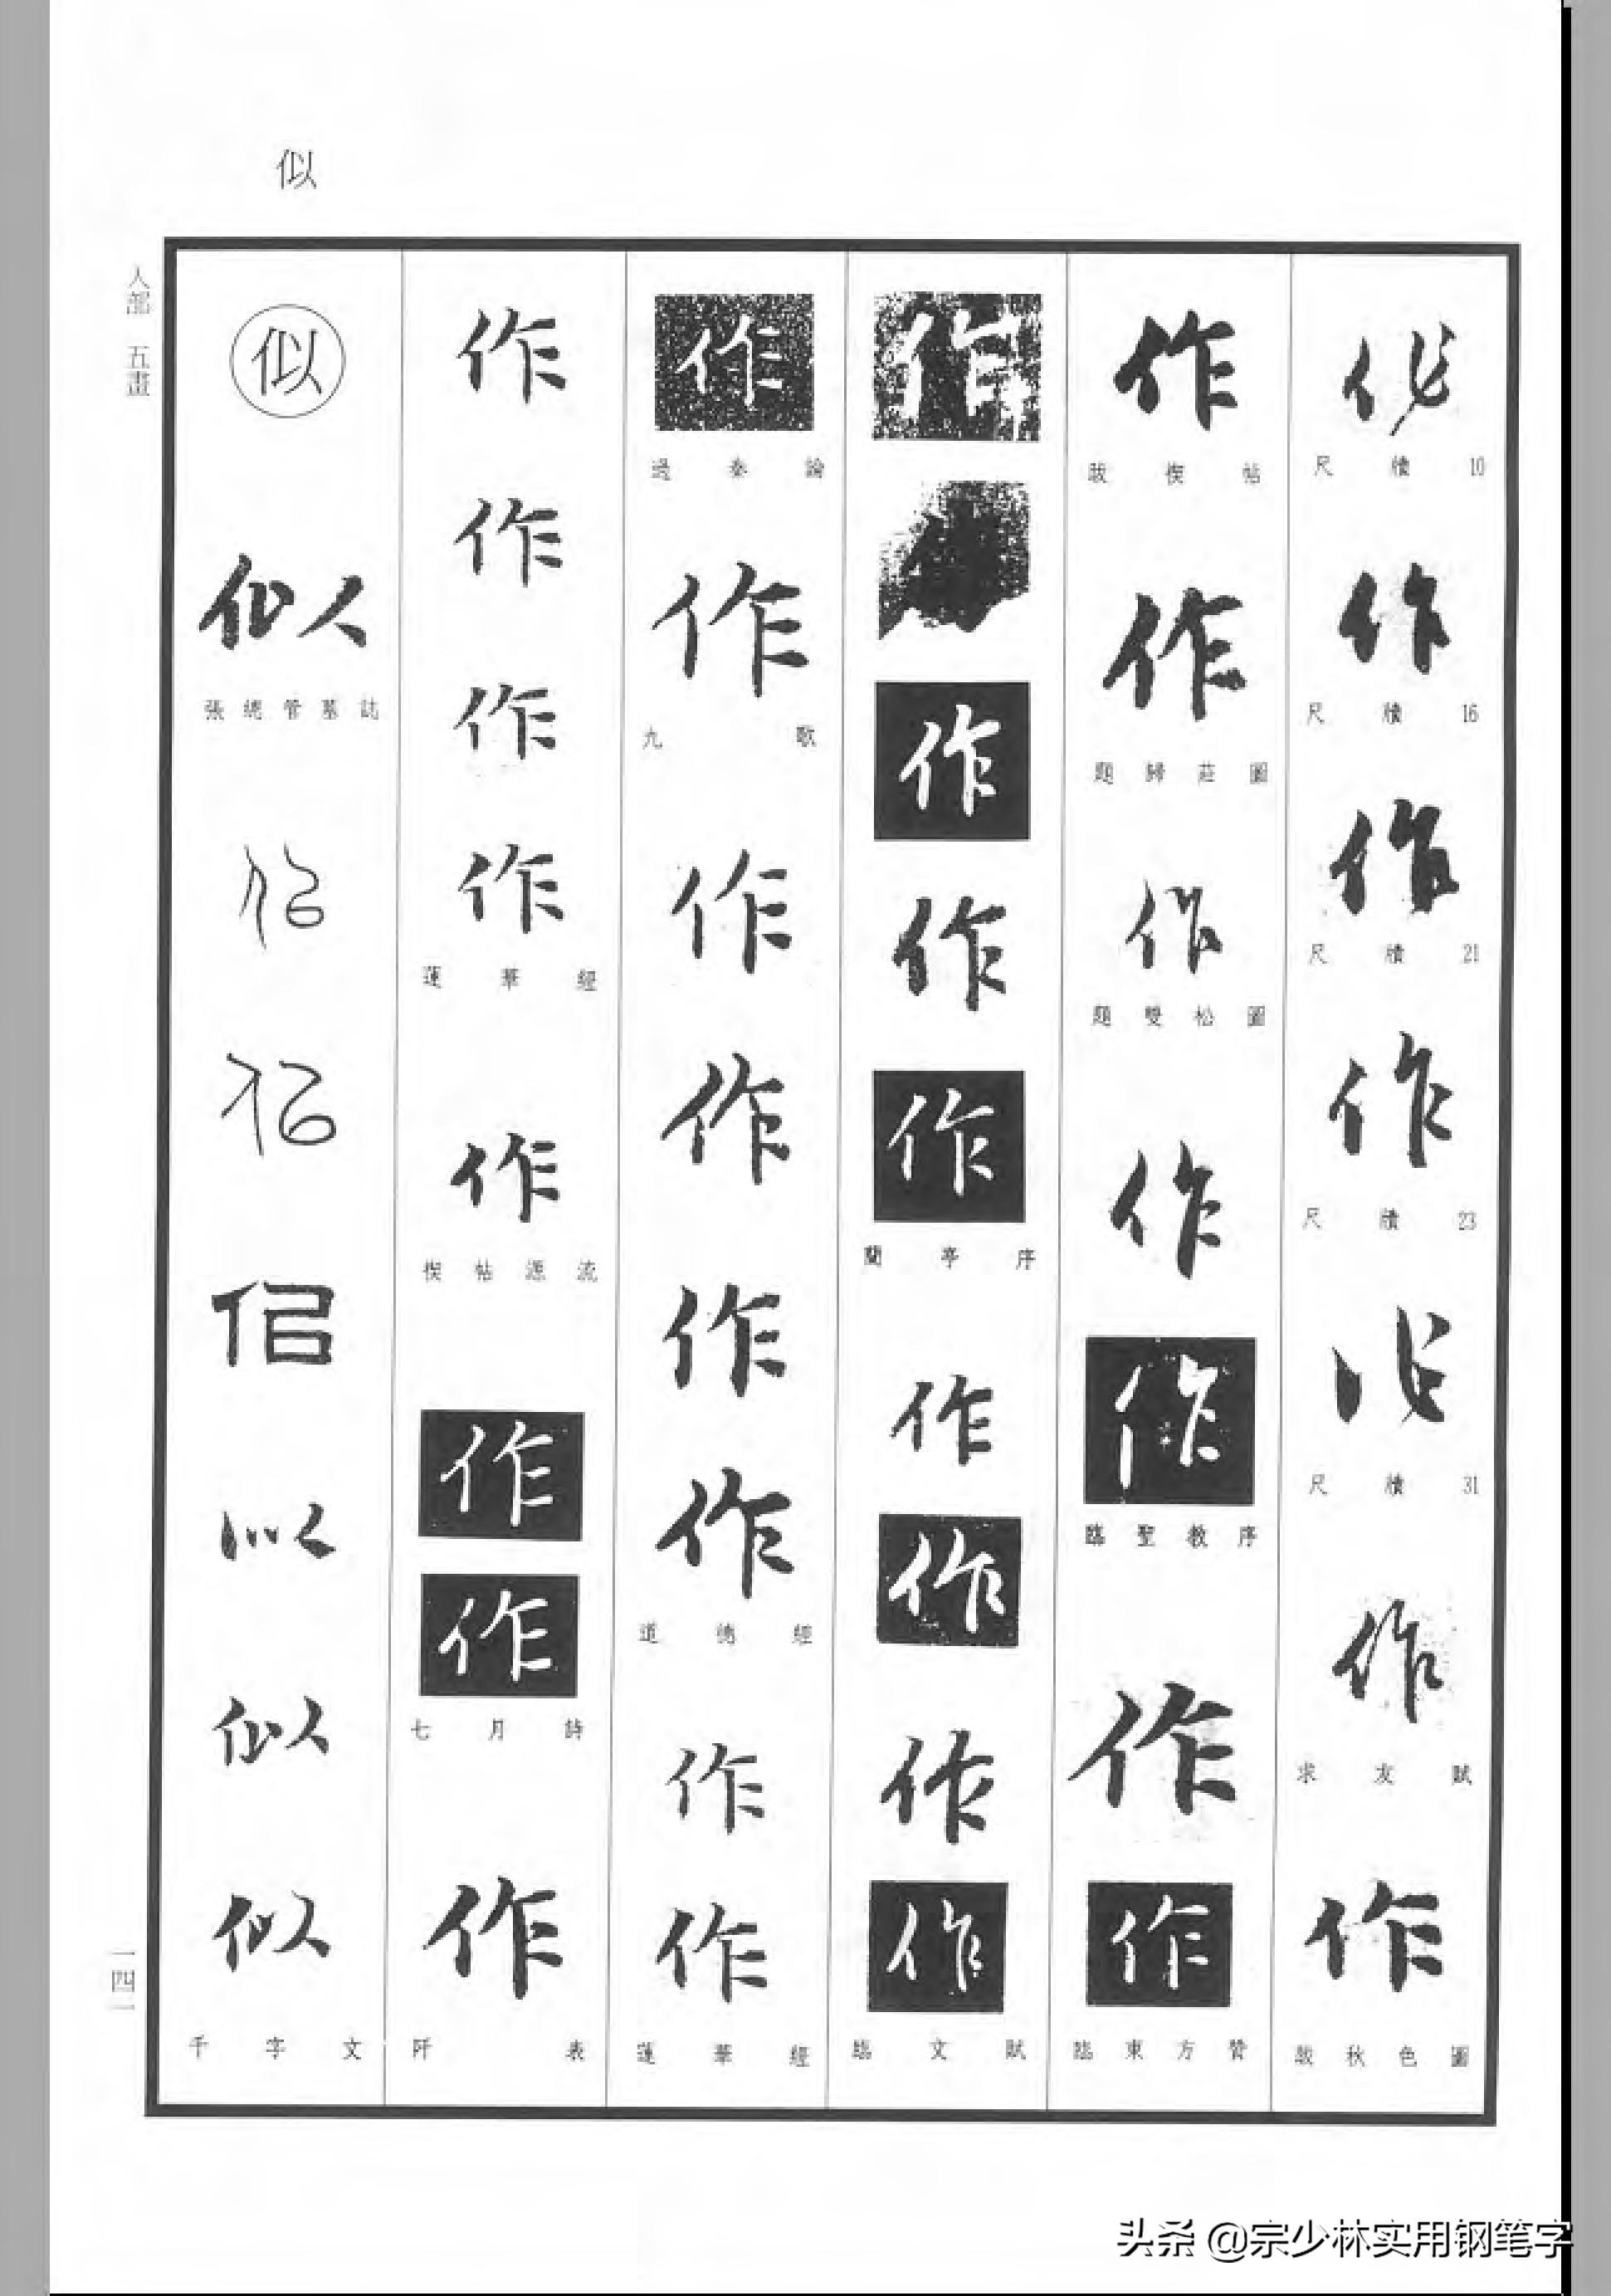 似
人部 五畫
作
尺牘10
作
尺牘16
作
尺牘21
作
尺牘23
作
尺牘31
作
求友賦
作
跋秋色圖
作
跋禊帖
作
題歸莊圖
作
題雙松圖
作
作
臨聖教序
作
作
臨東方贊
作
作
作
作
蘭亭序
作
作
作
作
臨文賦
作
過秦論
作
九歌
作
作
作
作
道德經
作
作
蓮華經
作
作
作
作
蓮華經
作
禊帖源流
作
作
七月詩
作
阡表
似
似
張總管墓誌
似
似
似
似
似
似
千字文
一四一
头条 @宗少林实用钢笔字